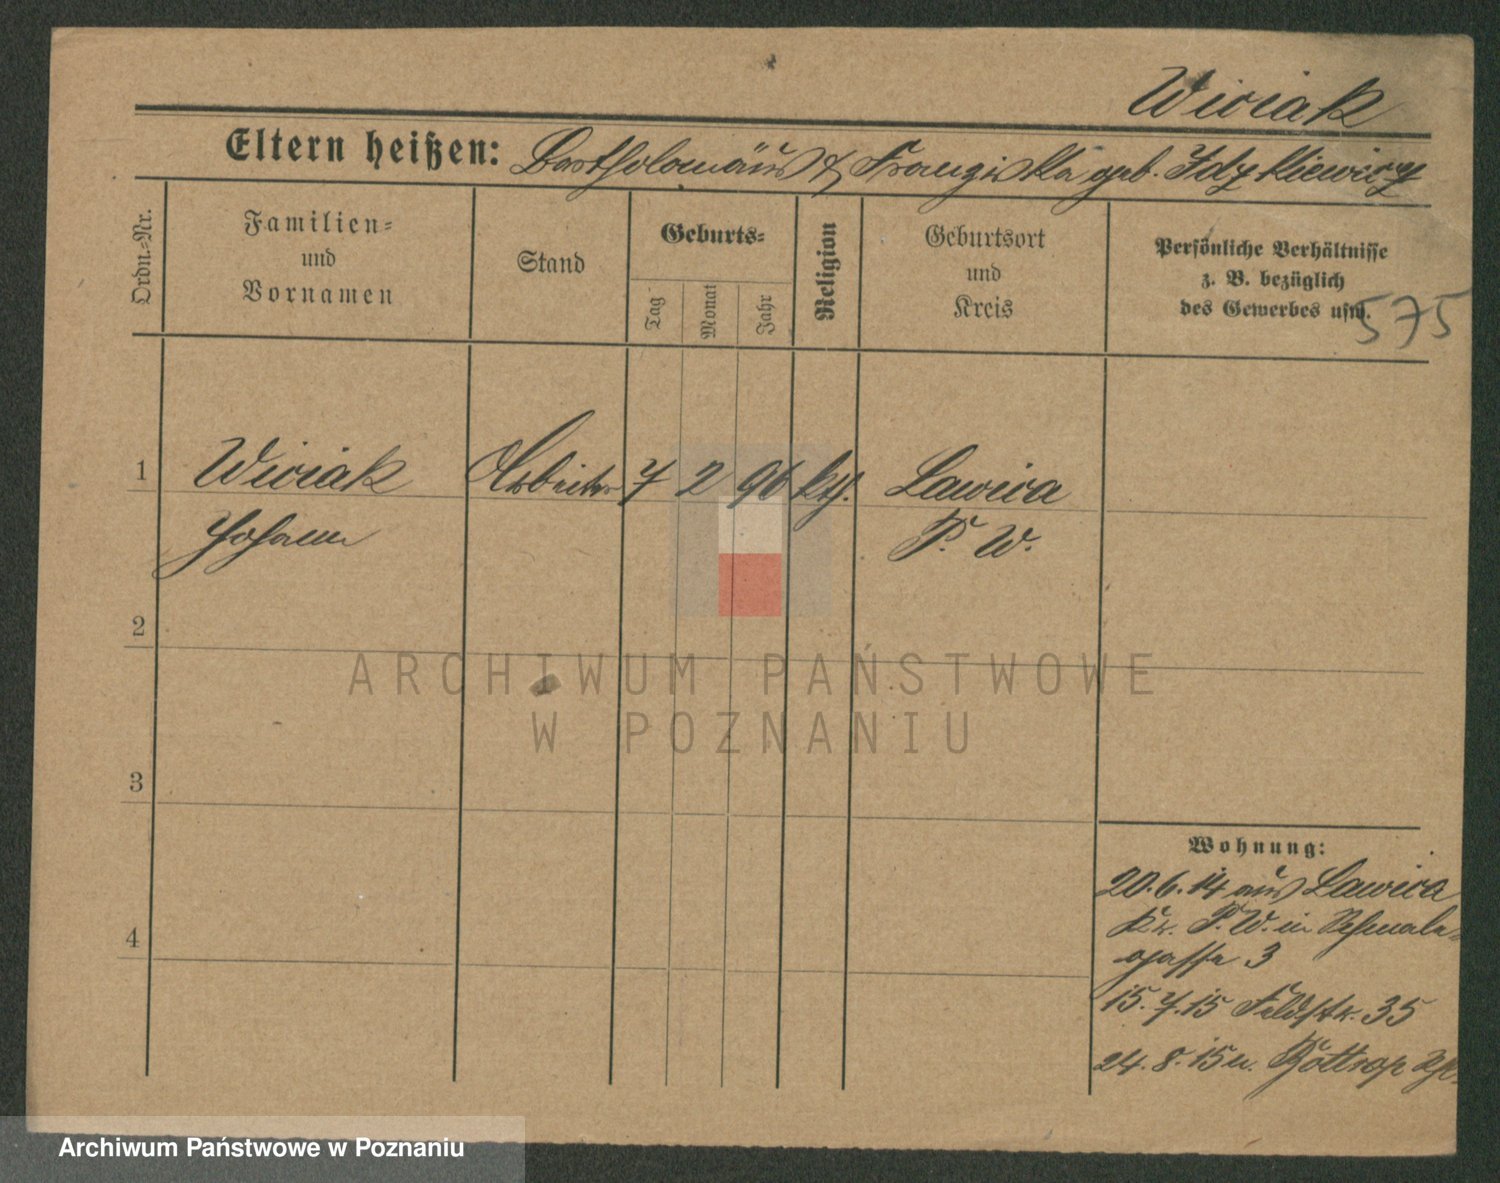 Wiciak
Eltern heißen: Bartholomäus & Franziska geb. Idzkiewicz
Ordn.-Nr.
Familien-
und
Vornamen
Stand
Geburts-
Tag
Monat
Jahr
Religion
Geburtsort
und
Kreis
Persönliche Verhältnisse
z. B. bezüglich
des Gewerbes usw.
575
1 Wiciak Arbeiter 7 2 96 kth. Lawica
Johann P. W.
2
3
4
ARCHIWUM PAŃSTWOWE
W POZNANIU
Wohnung:
20.6.14 aus Lawica
Kr. P. W. in Schmale-
gasse 3
15.7.15 Feldstr. 35
24.8.15 n. Bottrop
Archiwum Państwowe w Poznaniu